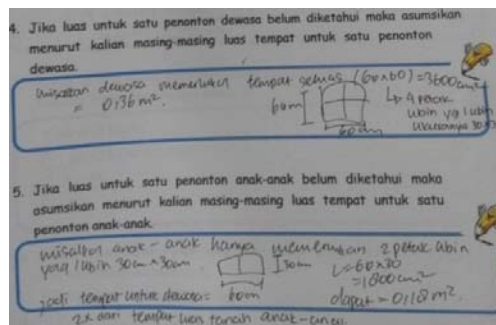 4. Jika luas untuk satu penonton dewasa belum diketahui maka asumsikan
menurut kalian masing-masing luas tempat untuk satu penonton
dewasa.
misalkan dewasa memerlukan tempat seluas (60x60) = 3600 cm²
= 0,36 m².
60cm
60cm
4 petak
ubin yg 1 ubin
ukurannya 30x30
5. Jika luas untuk satu penonton anak-anak belum diketahui maka
asumsikan menurut kalian masing-masing luas tempat untuk satu
penonton anak-anak.
misalkan anak-anak hanya memerlukan 2 petak ubin
yang 1 ubin 30cm x 30cm
30cm
60cm
L = 60x30
= 1800 cm²
dapat = 0,18 m².
jadi tempat untuk dewasa =
2x dari tempat luas tanah anak-anak.